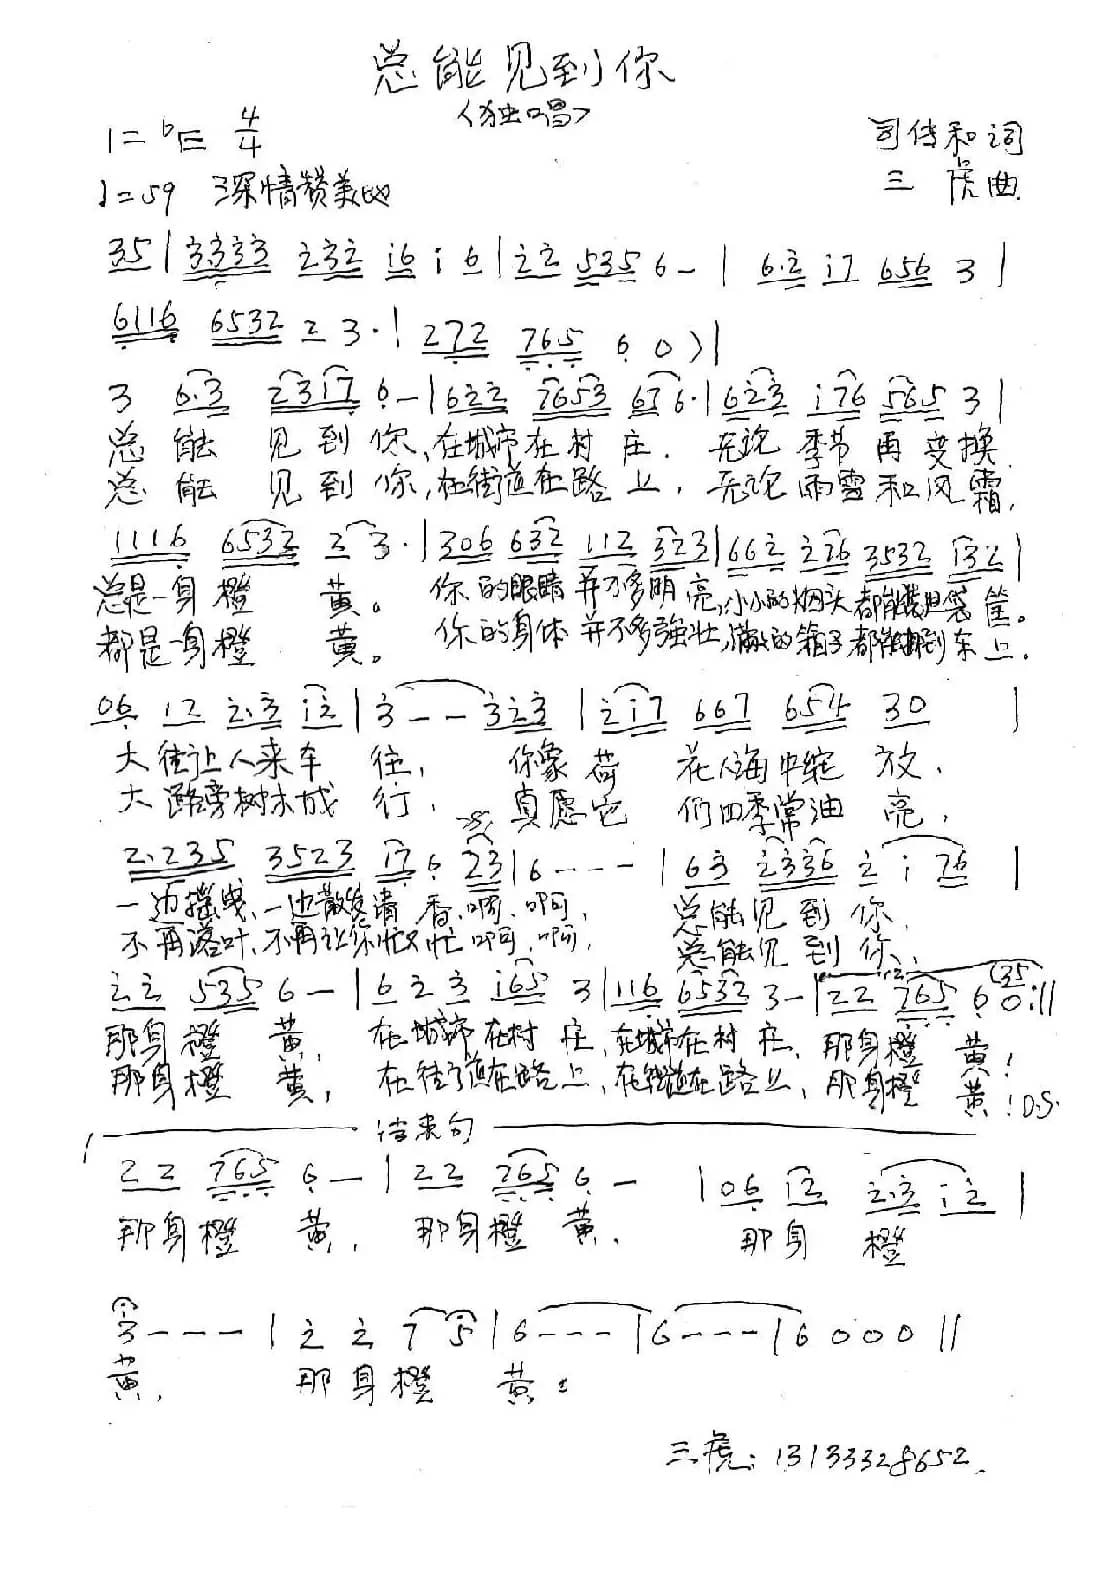 总能见到你
<独唱>
1=bE 4/4
司传和词
♩=59 深情赞美地
三虎曲
35|3333 232 i6 i 6|22 535 6-|6.2 i7 656 3|
6116 6532 2 3·|272 765 6 0)|
3 6.3 23i7 6-|622 7653 67 6·|623 i76 565 3|
总能见到你,在城市在村庄.无论季节再变换.
总能见到你,在街道在路上,无论雨雪和风霜,
1116 6532 2 3·|306 632 112 323|662 226 3532 132|
总是一身橙黄。你的眼睛并不多明亮,小小的烟头都能装进筐。
都是一身橙黄。你的身体并不多強壮,满满的箱子都能搬到车上.
06 12 2.3 i2|3--323|2i7 667 654 30|
大街让人来车往,你象荷花人海中绽放.
大路旁树木成行.真愿它们四季常油亮.
2.235 3523 i7 6 23|6---|63 2336 2 i 76|
一边摇曳、一边散发清香.啊.啊,总能见到你.
不再落叶、不再让你忙又忙.啊,啊,总能见到你.
22 535 6-|6 2 3 i65 3|116 6532 3-|22 765 6 0 (35:||
那身橙黄,在城市在村庄,在城市在村庄,那身橙黄!
那身橙黄,在街道在路上,在街道在路上,那身橙黄!D.S.
结束句
22 765 6-|22 765 6-|06 12 2.3 i2|
那身橙黄,那身橙黄,那身橙
3---|2 2 7 5|6---|6---|6000||
黄,那身橙黄!
三虎:13133328652.